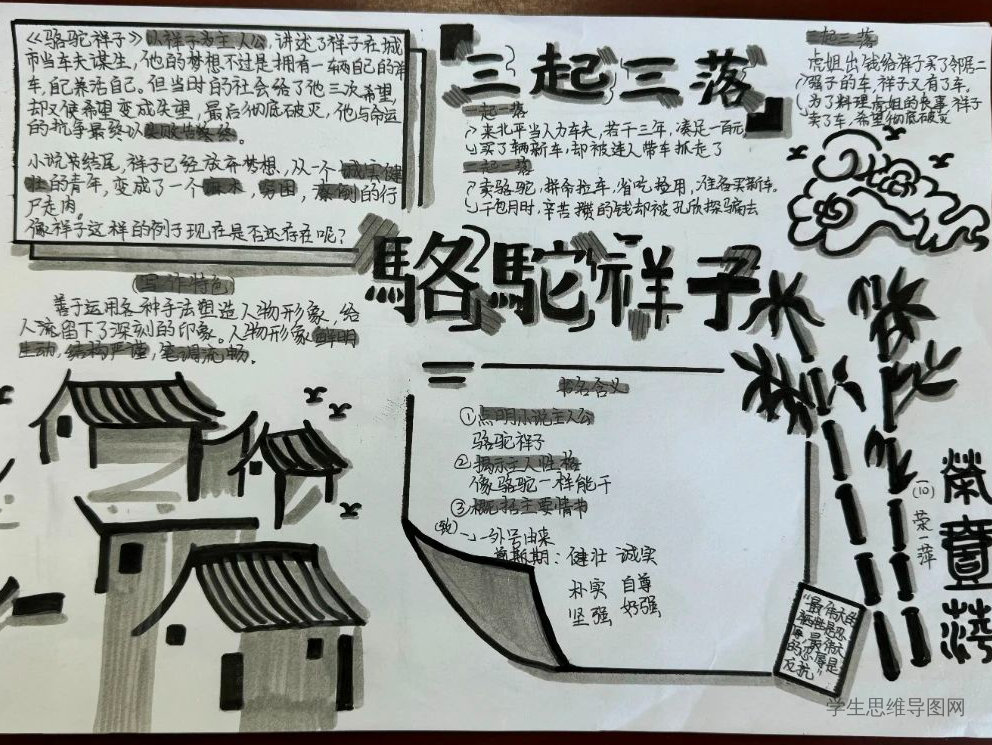 《骆驼祥子》以祥子为主人公,讲述了祥子在城
市当车夫谋生,他的梦想不过是拥有一辆自己的洋
车,配养活自己。但当时的社会给了他三次希望,
却又使希望变成失望,最后彻底破灭,他与命运
的抗争最终以失败告终
小说某结尾,祥子已经放弃梦想,从一个诚实健
壮的青年,变成了一个麻木,穷困,潦倒的行
尸走肉。
像祥子这样的例子现在是否还存在呢?
三起三落
一起一落
来北平当人力车夫,若干三年,凑足一百元
买了辆新车,却被连人带车抓走了
二起二落
卖骆驼,拼命拉车,省吃俭用,准备买新车。
干包月时,辛苦攒的钱却被孔侦探骗去
三起三落
虎姐出钱给祥子买了邻居二
强子的车,祥子又有了车。
为了料理虎姐的丧事,祥子
卖了车,希望彻底破灭
駱駝祥子
写作特色
善于运用各种手法塑造人物形象,给
人流留下了深刻的印象。人物形象鲜明
生动,结构严谨,笔调流畅。
书名含义
①点明小说主人公
骆驼祥子
②揭示主人性格
像骆驼一样能干
③概括主要情书
一外号由来
健壮 诚实
朴实 自尊
坚强 好强
(10)
荣一萍
"最伟大的
牺牲是忍
辱,最伟大
的忍辱是
反抗"
学生思维导图网